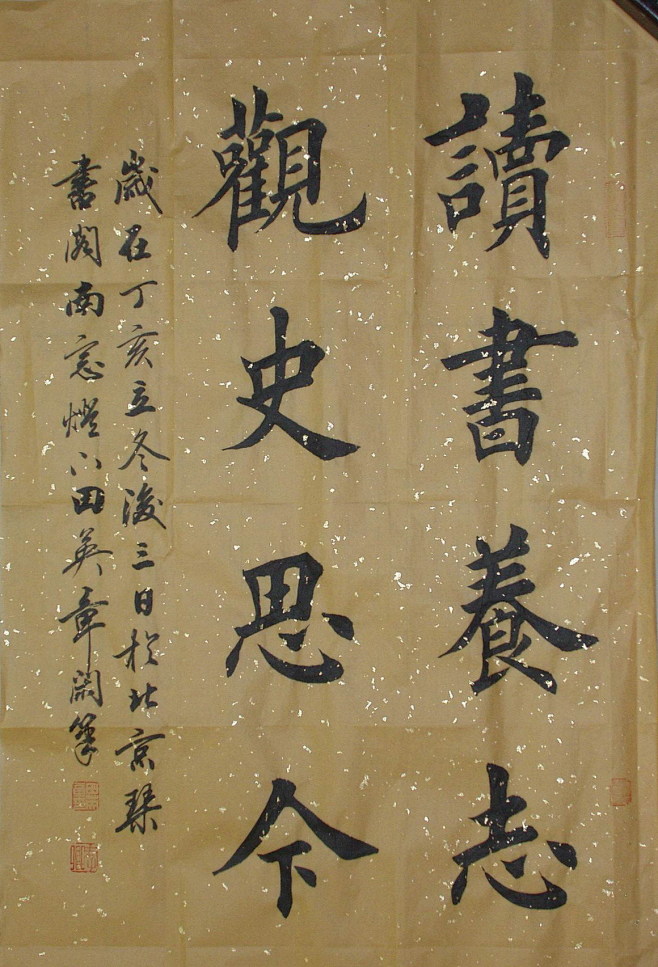 讀書養志
觀史思今
歲在丁亥立冬後三日於北京琹
書閣南窓燈下田英章閑筆